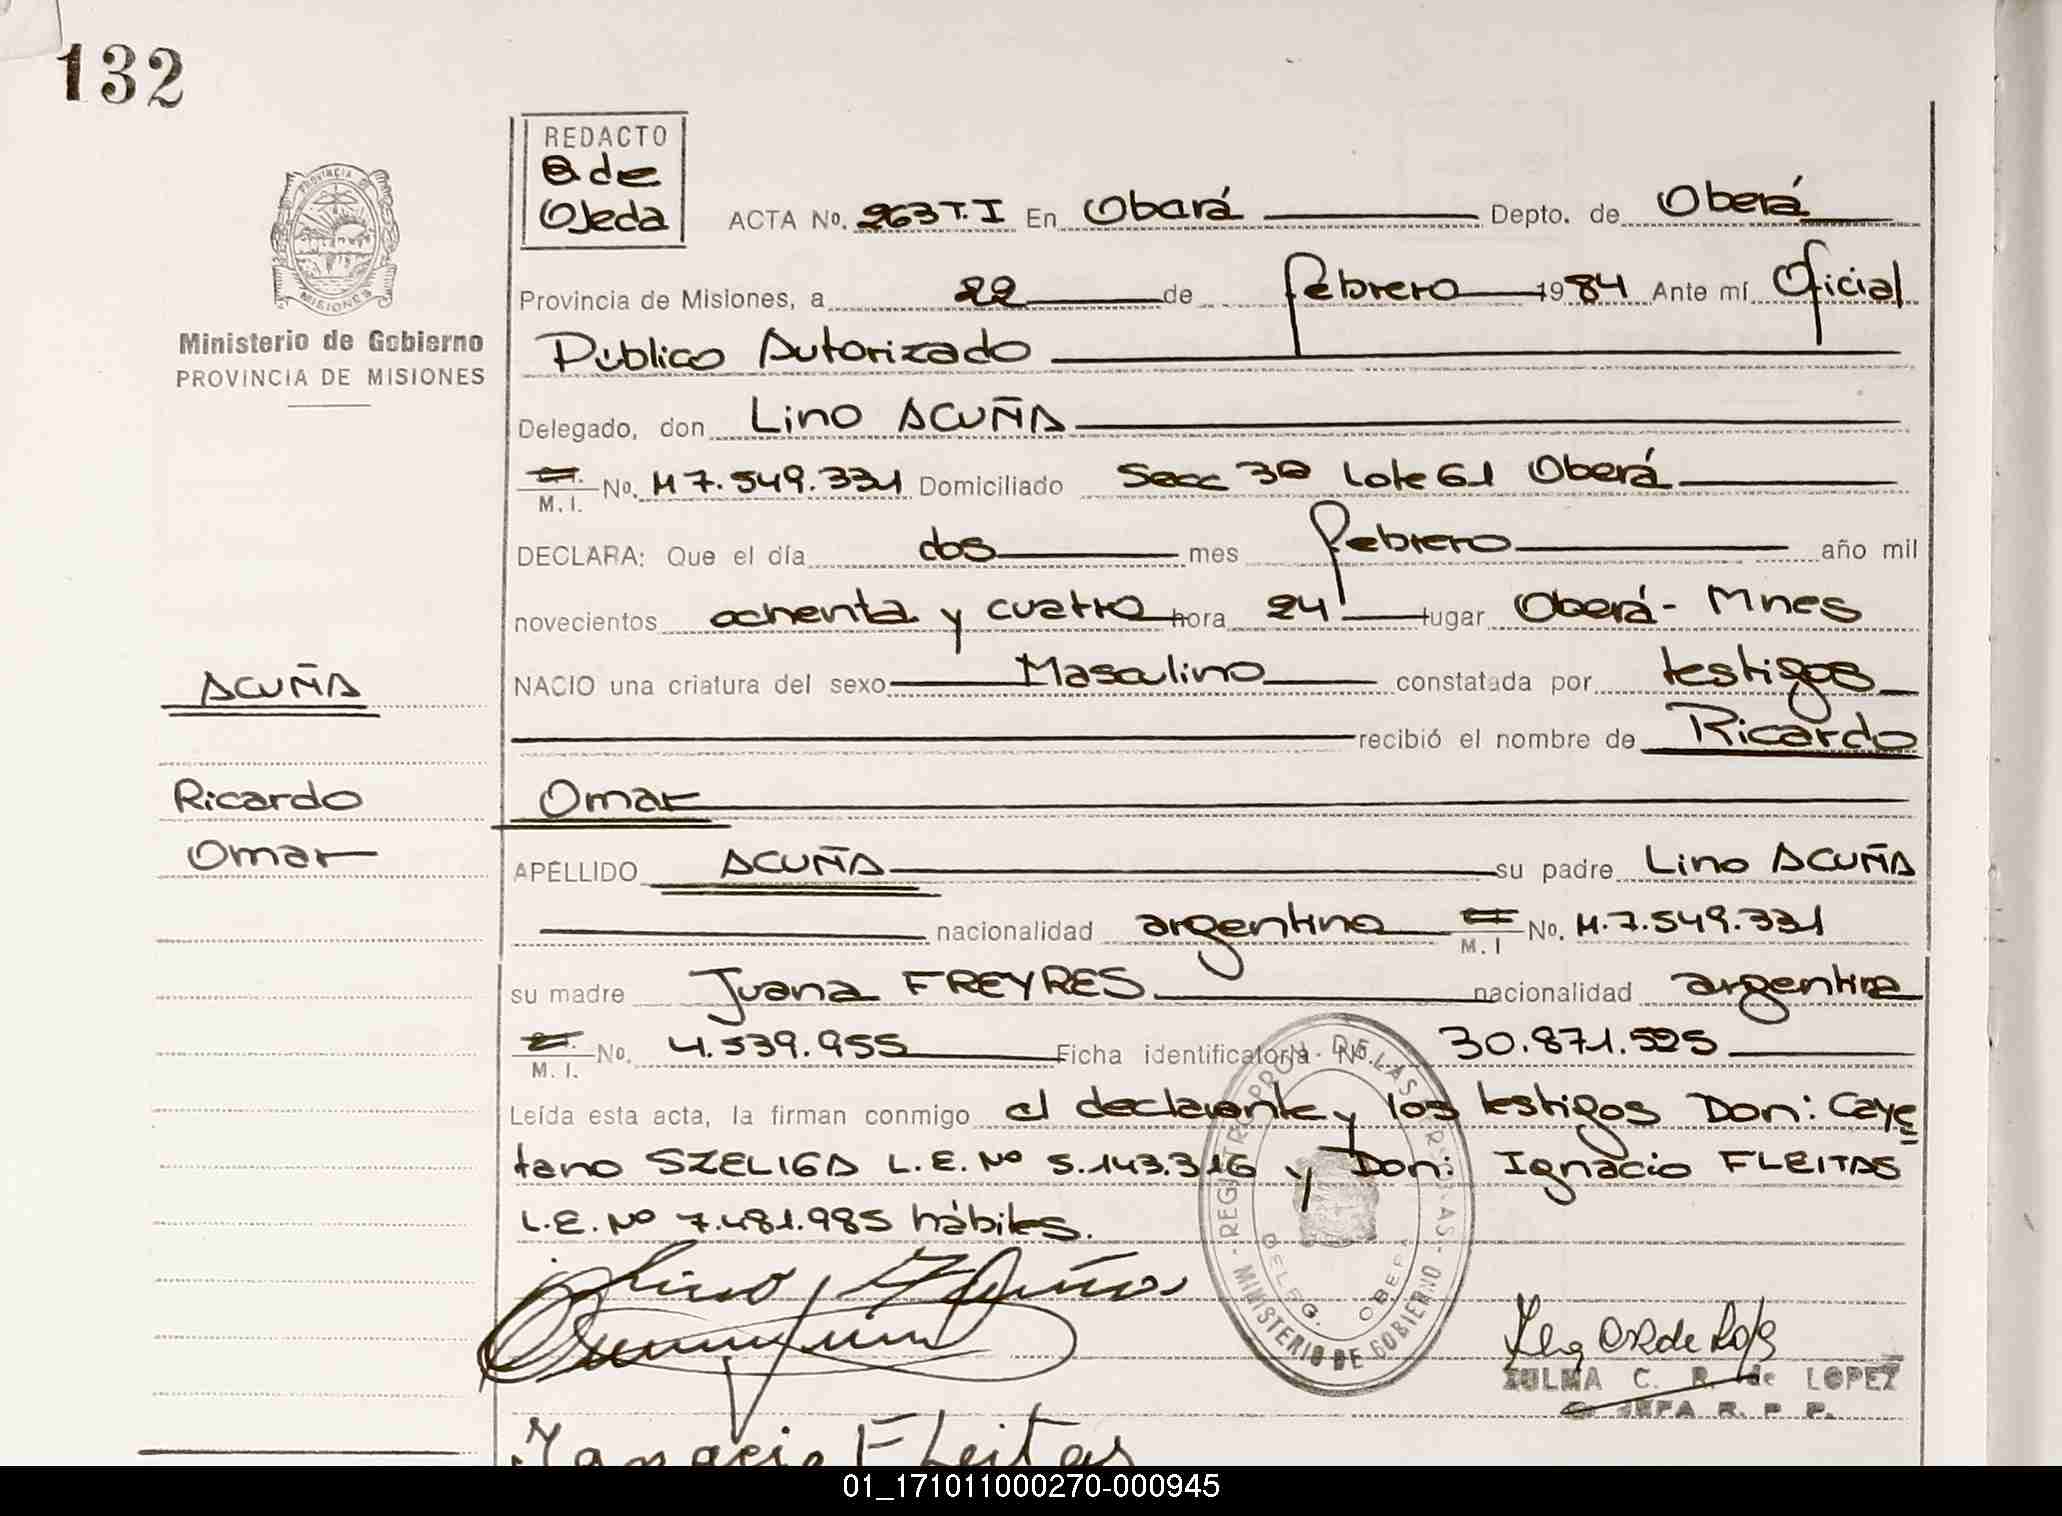 132
PROVINCIA DE
MISIONES
Ministerio de Gobierno
PROVINCIA DE MISIONES
REDACTO
B de
Ojeda
ACTA No. 263 T.I En Obará Depto. de Oberá
Provincia de Misiones, a 22 de febrero 1984 Ante mí Oficial
Público Autorizado
Delegado, don Lino ACUÑA
M. I. No. M 7.549.331 Domiciliado Secc 3ª Lote 61 Oberá
DECLARA: Que el día dos mes febrero año mil
novecientos ochenta y cuatro hora 24 lugar Oberá - Mnes
NACIO una criatura del sexo Masculino constatada por testigos
recibió el nombre de Ricardo
Omar
APELLIDO ACUÑA su padre Lino ACUÑA
nacionalidad argentino M. I No. M.7.549.331
su madre Juana FREYRES nacionalidad argentina
M. I. No. 4.539.955 Ficha identificatoria No. 30.871.525
Leída esta acta, la firman conmigo el declarante y los testigos Don: Caye
tano SZELIGA L.E. Nº 5.143.316 y Don: Ignacio FLEITAS
L.E. Nº 7.481.985 hábiles.
ACUÑA
Ricardo
Omar
Lino Acuña
REGISTRO PROV. DE LAS PERSONAS
MINISTERIO DE GOBIERNO
DELEG. OBERA
ZULMA C. R. de LOPEZ
JEFA R. P. P.
Ignacio FLeitas
01_171011000270-000945